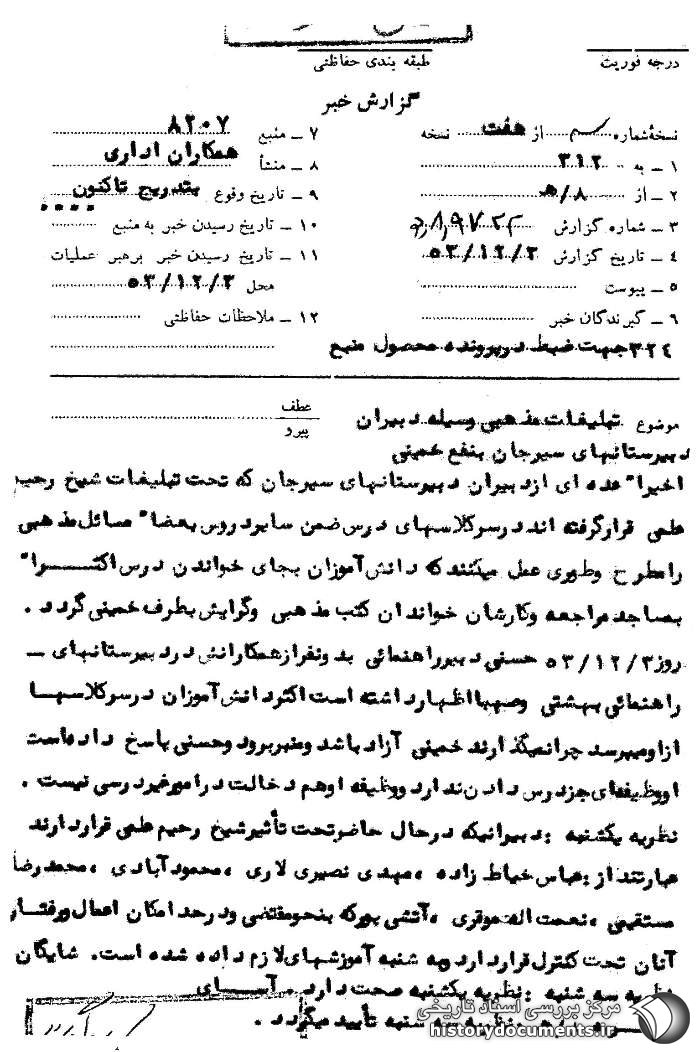 درجه فوریت
طبقه بندی حفاظتی
گزارش خبر
نسخهٔ شماره سه از هفت نسخه
۱ ــ به ۳۱۲
۲ ــ از ۸/هـ
۳ ــ شماره گزارش
۴ ــ تاریخ گزارش ۵۳/۱۲/۳
۵ ــ پیوست
۶ ــ گیرندگان خبر
۷ ــ منبع ۸۲۰۷
۸ ــ منشأ همکاران اداری
۹ ــ تاریخ وقوع بتدریج تاکنون
۱۰ ــ تاریخ رسیدن خبر به منبع
۱۱ ــ تاریخ رسیدن خبر برهبر عملیات
محل ۵۳/۱۲/۳
۱۲ ــ ملاحظات حفاظتی
۳۲۴ جهت ضبط در پرونده محصول منبع
موضوع تبلیغات مذهبی وسیله دبیران
عطف
پیرو
دبیرستانهای سیرجان بنفع خمینی
اخیرا" عده ای ازدبیران دبیرستانهای سیرجان که تحت تبلیغات شیخ رحیم
علمی قرارگرفته اند درسرکلاسهای درس ضمن سایر دروس بعضا" مسائل مذهبی
را مطرح وطوری عمل میکنند که دانش آموزان بجای خواندن درس اکثـــرا"
بمساجد مراجعه وکارشان خواندان کتب مذهبی وگرایش بطرف خمینی گردد .
روز ۵۳/۱۲/۳ حسنی دبیر راهنمائی بدونفر ازهمکارانش در دبیرستانهای ــ
راهنمائی بهشتی وصهبا اظهار داشته است اکثر دانش آموزان درسرکلاسهـا
ازاومیپرسد چرانمیگذارند خمینی آزاد باشد ومنبر برود وحسنی پاسخ داده است
اووظیفه‌ای جزدرس دادن ندارد ووظیفه اوهم دخالت درامور غیردرسی نیست .
نظریه یکشنبه : دبیرانیکه درحال حاضر تحت تأثیر شیخ رحیم علمی قراردارند
عبارتند از : عباس خیاط زاده ، مهدی نصیری لاری ، محمود آبادی ، محمد رضا
مستقیمی ، نعمت اله موقری ، آتشی بور که بنحو مقتضی ودرحد امکان اعمال ورفتار
آنان تحت کنترل قراردارد وبه شنبه آموزشهای لازم داده شده است. شایگان
نظریه سه شنبه : نظریه یکشنبه صحت دارد . آســای
نظریه سه شنبه تأیید میگردد .
مرکز بررسی اسناد تاریخی
historydocuments.ir